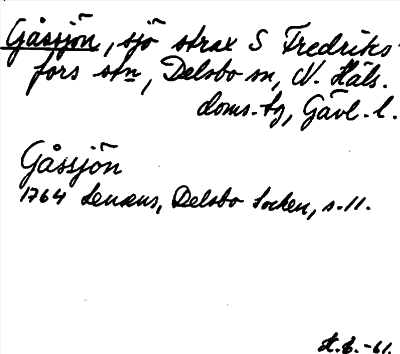 Gåssjön, sjö strax S Fredriks-
fors stn, Delsbo sn, N. Häls.
doms.-tg, Gävl. l.
Gåssjön
1764 Lenæus, Delsbo Socken, s. 11.
H.E. -61.